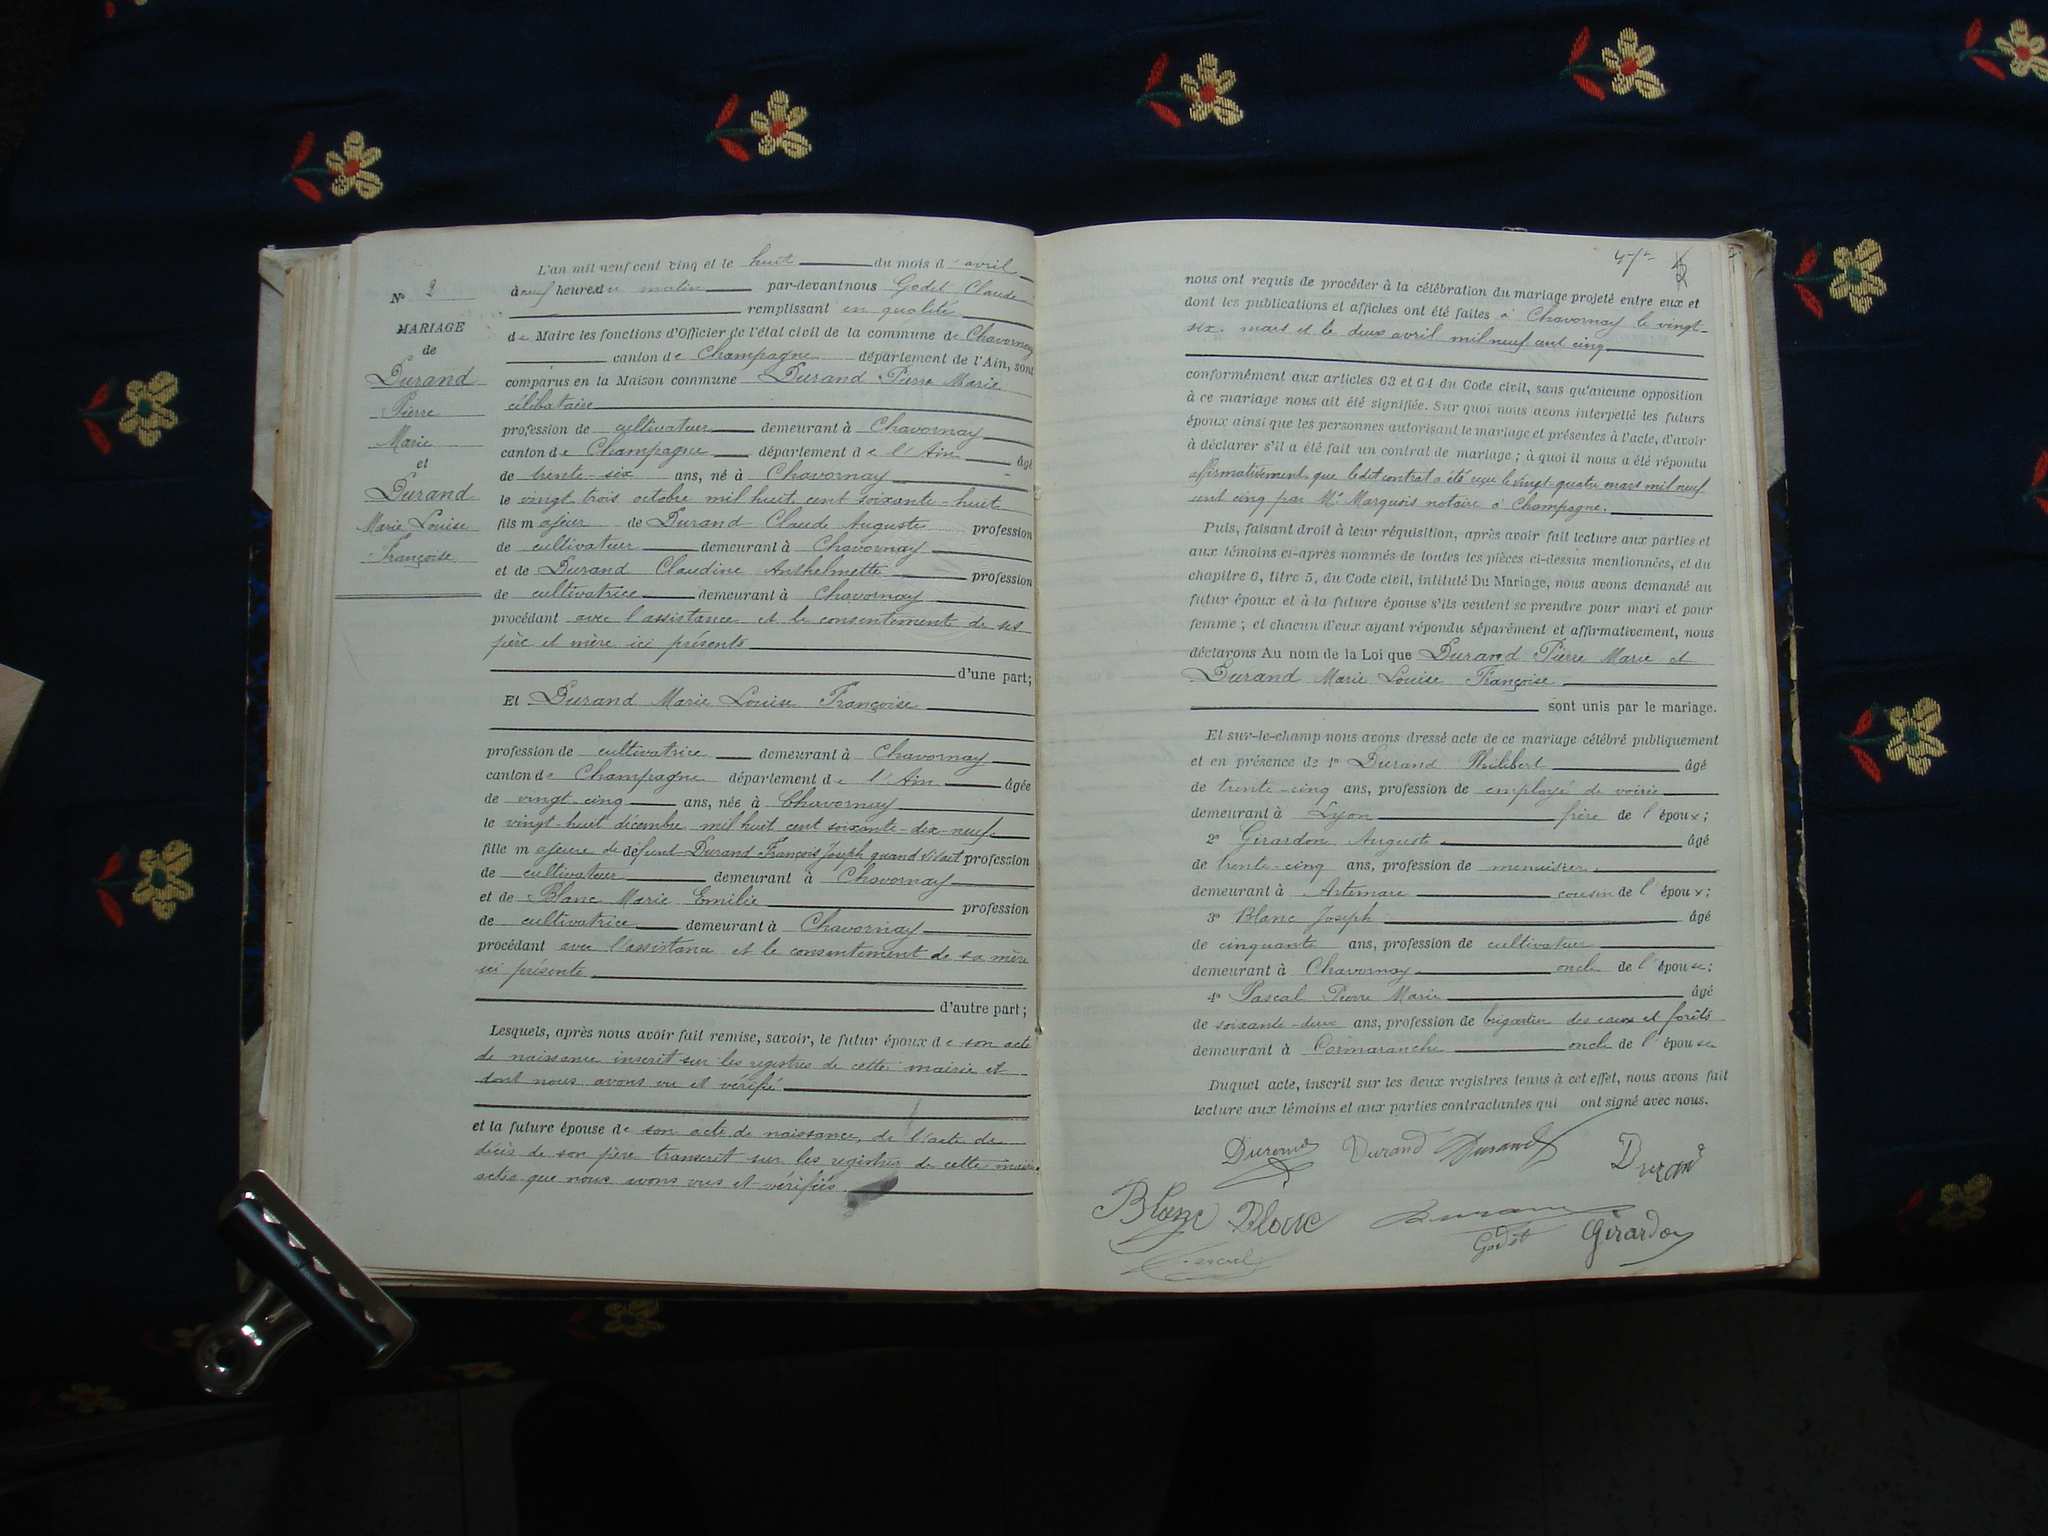 N° 2
MARIAGE
de
Durand
Pierre
Marie
et
Durand
Marie Louise
Françoise
L'an mil neuf cent cinq et le huit du mois d'avril
à neuf heures du matin par-devant nous Godet Claude
remplissant en qualité
de Maire les fonctions d'Officier de l'état civil de la commune de Chavornay
canton de Champagne département de l'Ain, sont
comparus en la Maison commune Durand Pierre Marie
célibataire
profession de cultivateur demeurant à Chavornay
canton de Champagne département de l'Ain âgé
de trente-six ans, né à Chavornay
le vingt trois octobre mil huit cent soixante-huit
fils majeur de Durand Claude Auguste profession
de cultivateur demeurant à Chavornay
et de Durand Claudine Anthelmette profession
de cultivatrice demeurant à Chavornay
procédant avec l'assistance et le consentement de ses
père et mère ici présents
d'une part;
Et Durand Marie Louise Françoise
profession de cultivatrice demeurant à Chavornay
canton de Champagne département de l'Ain âgée
de vingt-cinq ans, née à Chavornay
le vingt-huit décembre mil huit cent soixante-dix-neuf
fille majeure de défunt Durand François Joseph quand vivait profession
de cultivateur demeurant à Chavornay
et de Blanc Marie Emilie profession
de cultivatrice demeurant à Chavornay
procédant avec l'assistance et le consentement de sa mère
ici présente
d'autre part;
Lesquels, après nous avoir fait remise, savoir, le futur époux de son acte
de naissance inscrit sur les registres de cette mairie et
dont nous avons vu et vérifié
et la future épouse de son acte de naissance, de l'acte de
décès de son père transcrit sur les registres de cette mairie
actes que nous avons vus et vérifiés
nous ont requis de procéder à la célébration du mariage projeté entre eux et
dont les publications et affiches ont été faites à Chavornay le vingt-
six mars et le deux avril mil neuf cent cinq
conformément aux articles 63 et 64 du Code civil, sans qu'aucune opposition
à ce mariage nous ait été signifiée. Sur quoi nous avons interpellé les futurs
époux ainsi que les personnes autorisant le mariage et présentes à l'acte, d'avoir
à déclarer s'il a été fait un contrat de mariage; à quoi il nous a été répondu
affirmativement que ledit contrat a été reçu le vingt-quatre mars mil neuf
cent cinq par Me Marquis notaire à Champagne.
Puis, faisant droit à leur réquisition, après avoir fait lecture aux parties et
aux témoins ci-après nommés de toutes les pièces ci-dessus mentionnées, et du
chapitre 6, titre 5, du Code civil, intitulé Du Mariage, nous avons demandé au
futur époux et à la future épouse s'ils veulent se prendre pour mari et pour
femme; et chacun d'eux ayant répondu séparément et affirmativement, nous
déclarons Au nom de la Loi que Durand Pierre Marie et
Durand Marie Louise Françoise
sont unis par le mariage.
Et sur-le-champ nous avons dressé acte de ce mariage célébré publiquement
et en présence de 1° Durand Philibert âgé
de trente-cinq ans, profession de employé de voirie
demeurant à Lyon frère de l'époux;
2° Girardon Auguste âgé
de trente-cinq ans, profession de menuisier
demeurant à Artemare cousin de l'époux;
3° Blanc Joseph âgé
de cinquante ans, profession de cultivateur
demeurant à Chavornay oncle de l'épouse;
4° Pascal Pierre Marie âgé
de soixante-deux ans, profession de brigadier des eaux et forêts
demeurant à Cormaranche oncle de l'épouse
Duquel acte, inscrit sur les deux registres tenus à cet effet, nous avons fait
lecture aux témoins et aux parties contractantes qui ont signé avec nous.
Durand Durand Durand Durand
Blanc Blanc Durand Godet Girardon
Pascal